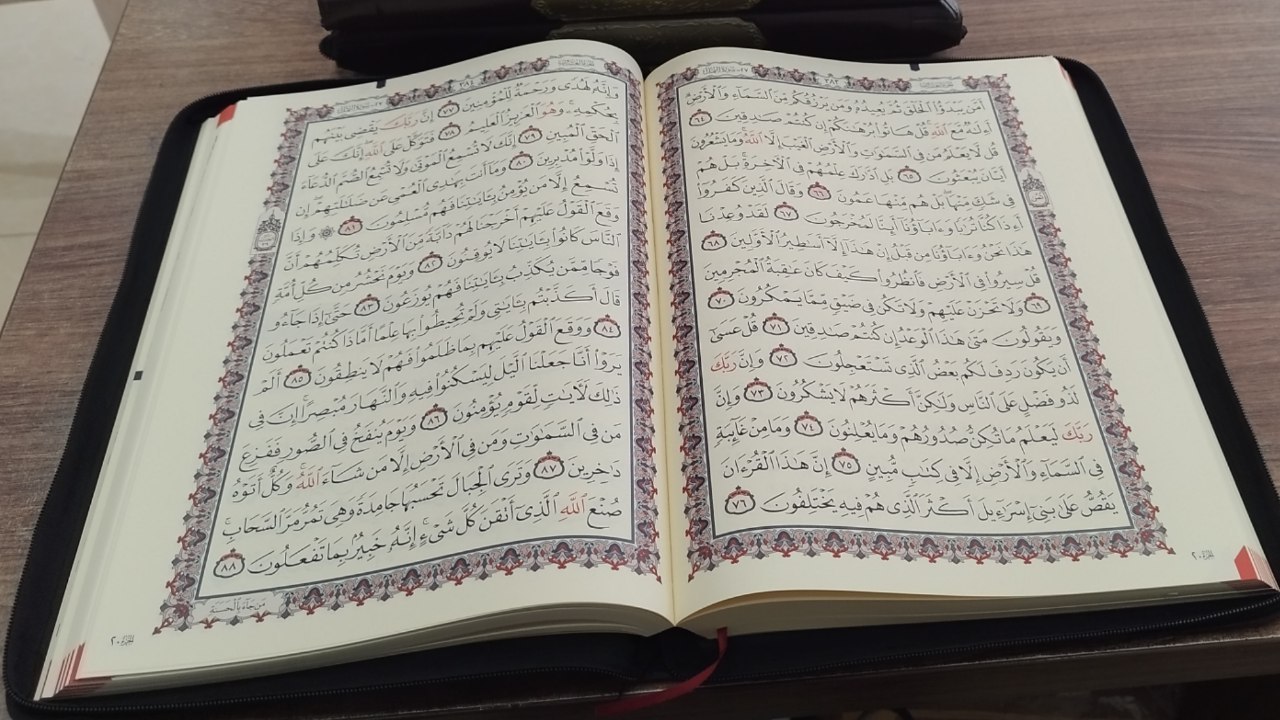 ٣٨٣
أَمَّن يَبْدَؤُا۟ ٱلْخَلْقَ ثُمَّ يُعِيدُهُۥ وَمَن يَرْزُقُكُم مِّنَ ٱلسَّمَآءِ وَٱلْأَرْضِ
أَءِلَـٰهٌ مَّعَ ٱللَّهِ قُلْ هَاتُوا۟ بُرْهَـٰنَكُمْ إِن كُنتُمْ صَـٰدِقِينَ ٦٤
قُل لَّا يَعْلَمُ مَن فِى ٱلسَّمَـٰوَٰتِ وَٱلْأَرْضِ ٱلْغَيْبَ إِلَّا ٱللَّهُ وَمَا يَشْعُرُونَ
أَيَّانَ يُبْعَثُونَ ٦٥ بَلِ ٱدَّٰرَكَ عِلْمُهُمْ فِى ٱلْـَٔاخِرَةِ بَلْ هُمْ
فِى شَكٍّ مِّنْهَا بَلْ هُم مِّنْهَا عَمُونَ ٦٦ وَقَالَ ٱلَّذِينَ كَفَرُوٓا۟
أَءِذَا كُنَّا تُرَٰبًا وَءَابَآؤُنَآ أَئِنَّا لَمُخْرَجُونَ ٦٧ لَقَدْ وُعِدْنَا
هَـٰذَا نَحْنُ وَءَابَآؤُنَا مِن قَبْلُ إِنْ هَـٰذَآ إِلَّآ أَسَـٰطِيرُ ٱلْأَوَّلِينَ ٦٨
قُلْ سِيرُوا۟ فِى ٱلْأَرْضِ فَٱنظُرُوا۟ كَيْفَ كَانَ عَـٰقِبَةُ ٱلْمُجْرِمِينَ
٦٩ وَلَا تَحْزَنْ عَلَيْهِمْ وَلَا تَكُن فِى ضَيْقٍ مِّمَّا يَمْكُرُونَ ٧٠
وَيَقُولُونَ مَتَىٰ هَـٰذَا ٱلْوَعْدُ إِن كُنتُمْ صَـٰدِقِينَ ٧١ قُلْ عَسَىٰٓ
أَن يَكُونَ رَدِفَ لَكُم بَعْضُ ٱلَّذِى تَسْتَعْجِلُونَ ٧٢ وَإِنَّ رَبَّكَ
لَذُو فَضْلٍ عَلَى ٱلنَّاسِ وَلَـٰكِنَّ أَكْثَرَهُمْ لَا يَشْكُرُونَ ٧٣ وَإِنَّ
رَبَّكَ لَيَعْلَمُ مَا تُكِنُّ صُدُورُهُمْ وَمَا يُعْلِنُونَ ٧٤ وَمَا مِنْ غَآئِبَةٍ
فِى ٱلسَّمَآءِ وَٱلْأَرْضِ إِلَّا فِى كِتَـٰبٍ مُّبِينٍ ٧٥ إِنَّ هَـٰذَا ٱلْقُرْءَانَ
يَقُصُّ عَلَىٰ بَنِىٓ إِسْرَٰٓءِيلَ أَكْثَرَ ٱلَّذِى هُمْ فِيهِ يَخْتَلِفُونَ ٧٦
الجزء ٢٠
٣٨٤
وَإِنَّهُۥ لَهُدًى وَرَحْمَةٌ لِّلْمُؤْمِنِينَ ٧٧ إِنَّ رَبَّكَ يَقْضِى بَيْنَهُم
بِحُكْمِهِۦ وَهُوَ ٱلْعَزِيزُ ٱلْعَلِيمُ ٧٨ فَتَوَكَّلْ عَلَى ٱللَّهِ إِنَّكَ عَلَى
ٱلْحَقِّ ٱلْمُبِينِ ٧٩ إِنَّكَ لَا تُسْمِعُ ٱلْمَوْتَىٰ وَلَا تُسْمِعُ ٱلصُّمَّ ٱلدُّعَآءَ
إِذَا وَلَّوْا۟ مُدْبِرِينَ ٨٠ وَمَآ أَنتَ بِهَـٰدِى ٱلْعُمْىِ عَن ضَلَـٰلَتِهِمْ إِن
تُسْمِعُ إِلَّا مَن يُؤْمِنُ بِـَٔايَـٰتِنَا فَهُم مُّسْلِمُونَ ٨١ ۞ وَإِذَا
وَقَعَ ٱلْقَوْلُ عَلَيْهِمْ أَخْرَجْنَا لَهُمْ دَآبَّةً مِّنَ ٱلْأَرْضِ تُكَلِّمُهُمْ أَنَّ
ٱلنَّاسَ كَانُوا۟ بِـَٔايَـٰتِنَا لَا يُوقِنُونَ ٨٢ وَيَوْمَ نَحْشُرُ مِن كُلِّ أُمَّةٍ
فَوْجًا مِّمَّن يُكَذِّبُ بِـَٔايَـٰتِنَا فَهُمْ يُوزَعُونَ ٨٣ حَتَّىٰٓ إِذَا جَآءُو
قَالَ أَكَذَّبْتُم بِـَٔايَـٰتِى وَلَمْ تُحِيطُوا۟ بِهَا عِلْمًا أَمَّاذَا كُنتُمْ تَعْمَلُونَ
٨٤ وَوَقَعَ ٱلْقَوْلُ عَلَيْهِم بِمَا ظَلَمُوا۟ فَهُمْ لَا يَنطِقُونَ ٨٥ أَلَمْ
يَرَوْا۟ أَنَّا جَعَلْنَا ٱلَّيْلَ لِيَسْكُنُوا۟ فِيهِ وَٱلنَّهَارَ مُبْصِرًا إِنَّ فِى
ذَٰلِكَ لَـَٔايَـٰتٍ لِّقَوْمٍ يُؤْمِنُونَ ٨٦ وَيَوْمَ يُنفَخُ فِى ٱلصُّورِ فَفَزِعَ
مَن فِى ٱلسَّمَـٰوَٰتِ وَمَن فِى ٱلْأَرْضِ إِلَّا مَن شَآءَ ٱللَّهُ وَكُلٌّ أَتَوْهُ
دَٰخِرِينَ ٨٧ وَتَرَى ٱلْجِبَالَ تَحْسَبُهَا جَامِدَةً وَهِىَ تَمُرُّ مَرَّ ٱلسَّحَابِ
صُنْعَ ٱللَّهِ ٱلَّذِىٓ أَتْقَنَ كُلَّ شَىْءٍ إِنَّهُۥ خَبِيرٌۢ بِمَا تَفْعَلُونَ ٨٨
من جاء بالحسنة
الجزء ٢٠